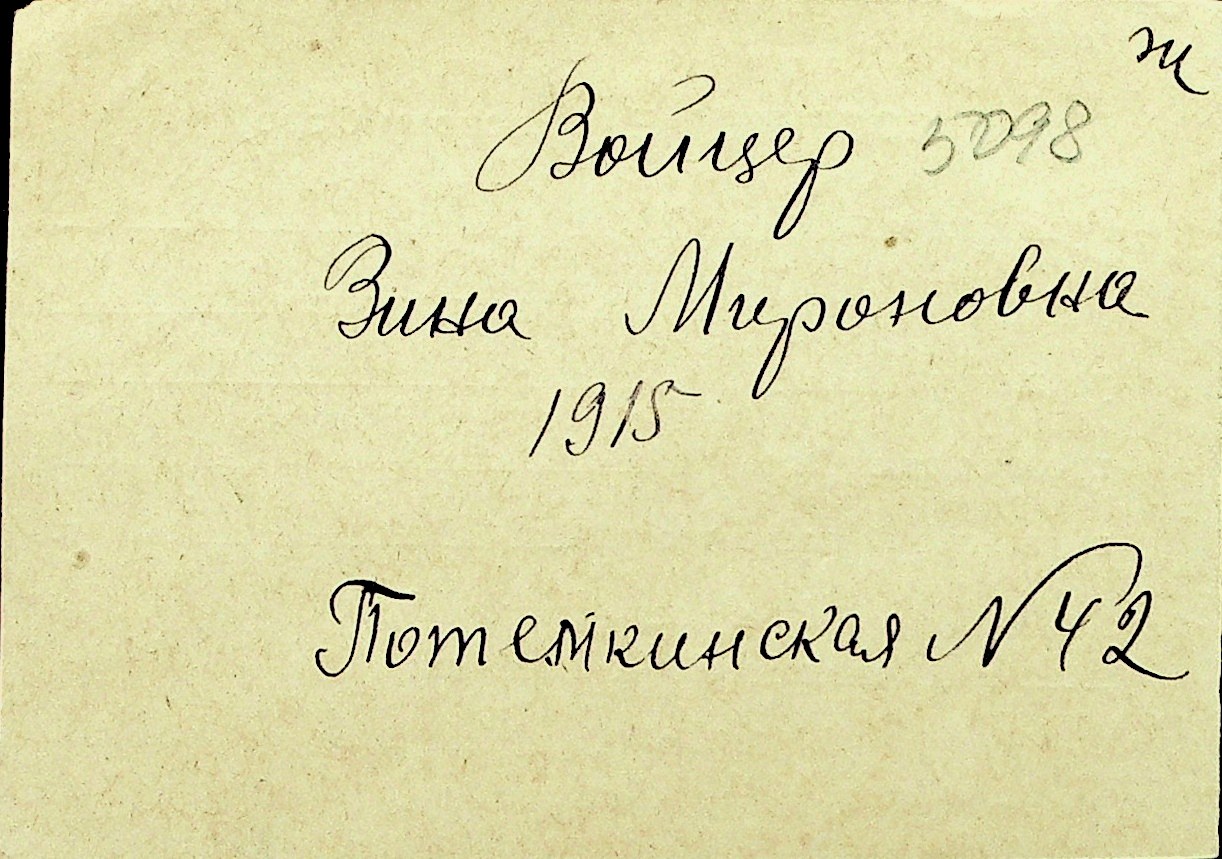 ж
Войцер 5098
Зина Мироновна
1915
Потемкинская N 42